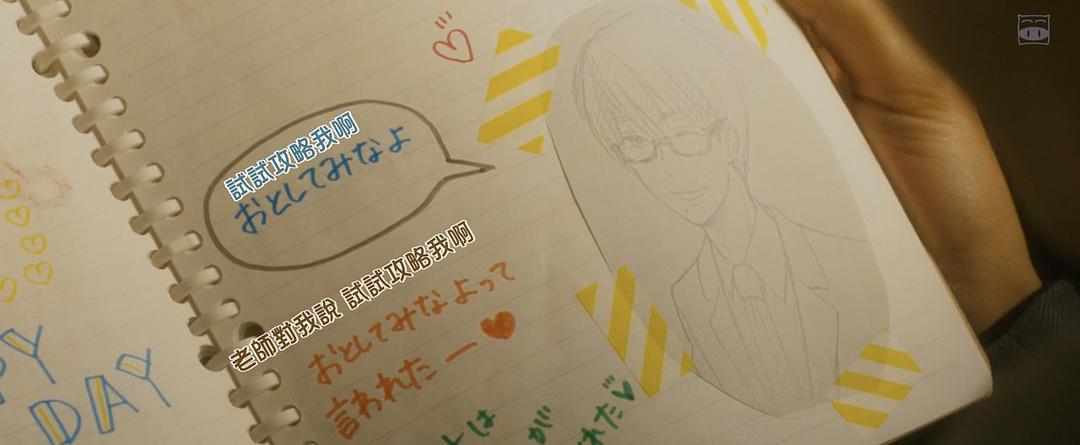 試試攻略我啊
おとしてみなよ
老師對我說 試試攻略我啊
おとしてみなよって
言われたー
DAY